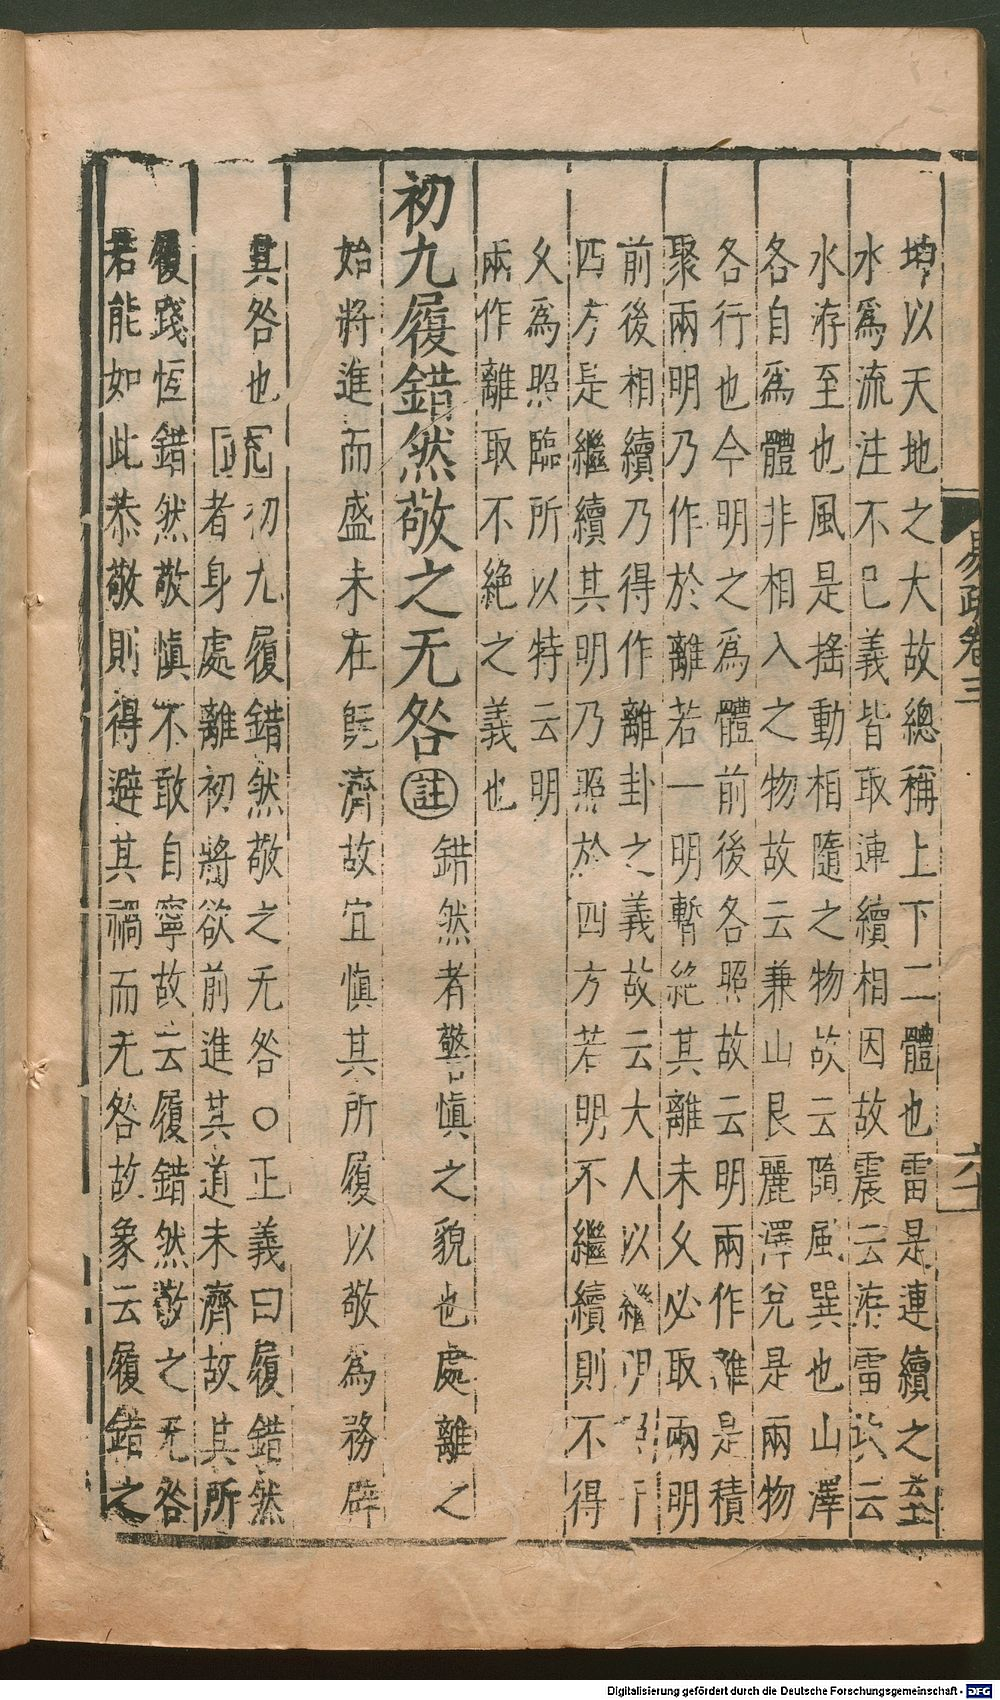 易疏卷三
六十
坤以天地之大故總稱上下二體也雷是連續之至
水爲流注不已義皆取連續相因故震云洊雷云
水洊至也風是搖動相隨之物故云隨風巽也山澤
各自爲體非相入之物故云兼山艮麗澤兌是兩物
各行也今明之爲體前後各照故云明兩作離是積
聚兩明乃作於離若一明暫絶其離未久必取兩明
前後相續乃得作離卦之義故云大人以繼明照于
四方是繼續其明乃照於四方若明不繼續則不得
久爲照臨所以特云明
兩作離取不絶之義也
初九履錯然敬之无咎註錯然者警慎之貌也處離之
始將進而盛未在旣濟故宜慎其所履以敬爲務辟
其咎也疏初九履錯然敬之无咎○正義曰履錯然
者身處離初將欲前進其道未濟故其所
履踐恆錯然敬慎不敢自寧故云履錯然敬之无咎
若能如此恭敬則得避其禍而无咎故象云履錯之
Digitalisierung gefördert durch die Deutsche Forschungsgemeinschaft - DFG